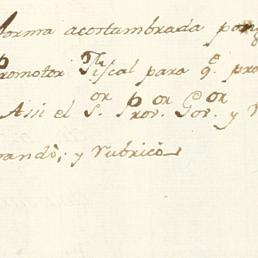 forma acostumbrada pong
Promotor Fiscal para q.e pro
Assi el S.or Prov.or Gov.or y V
mandò, y rubricò